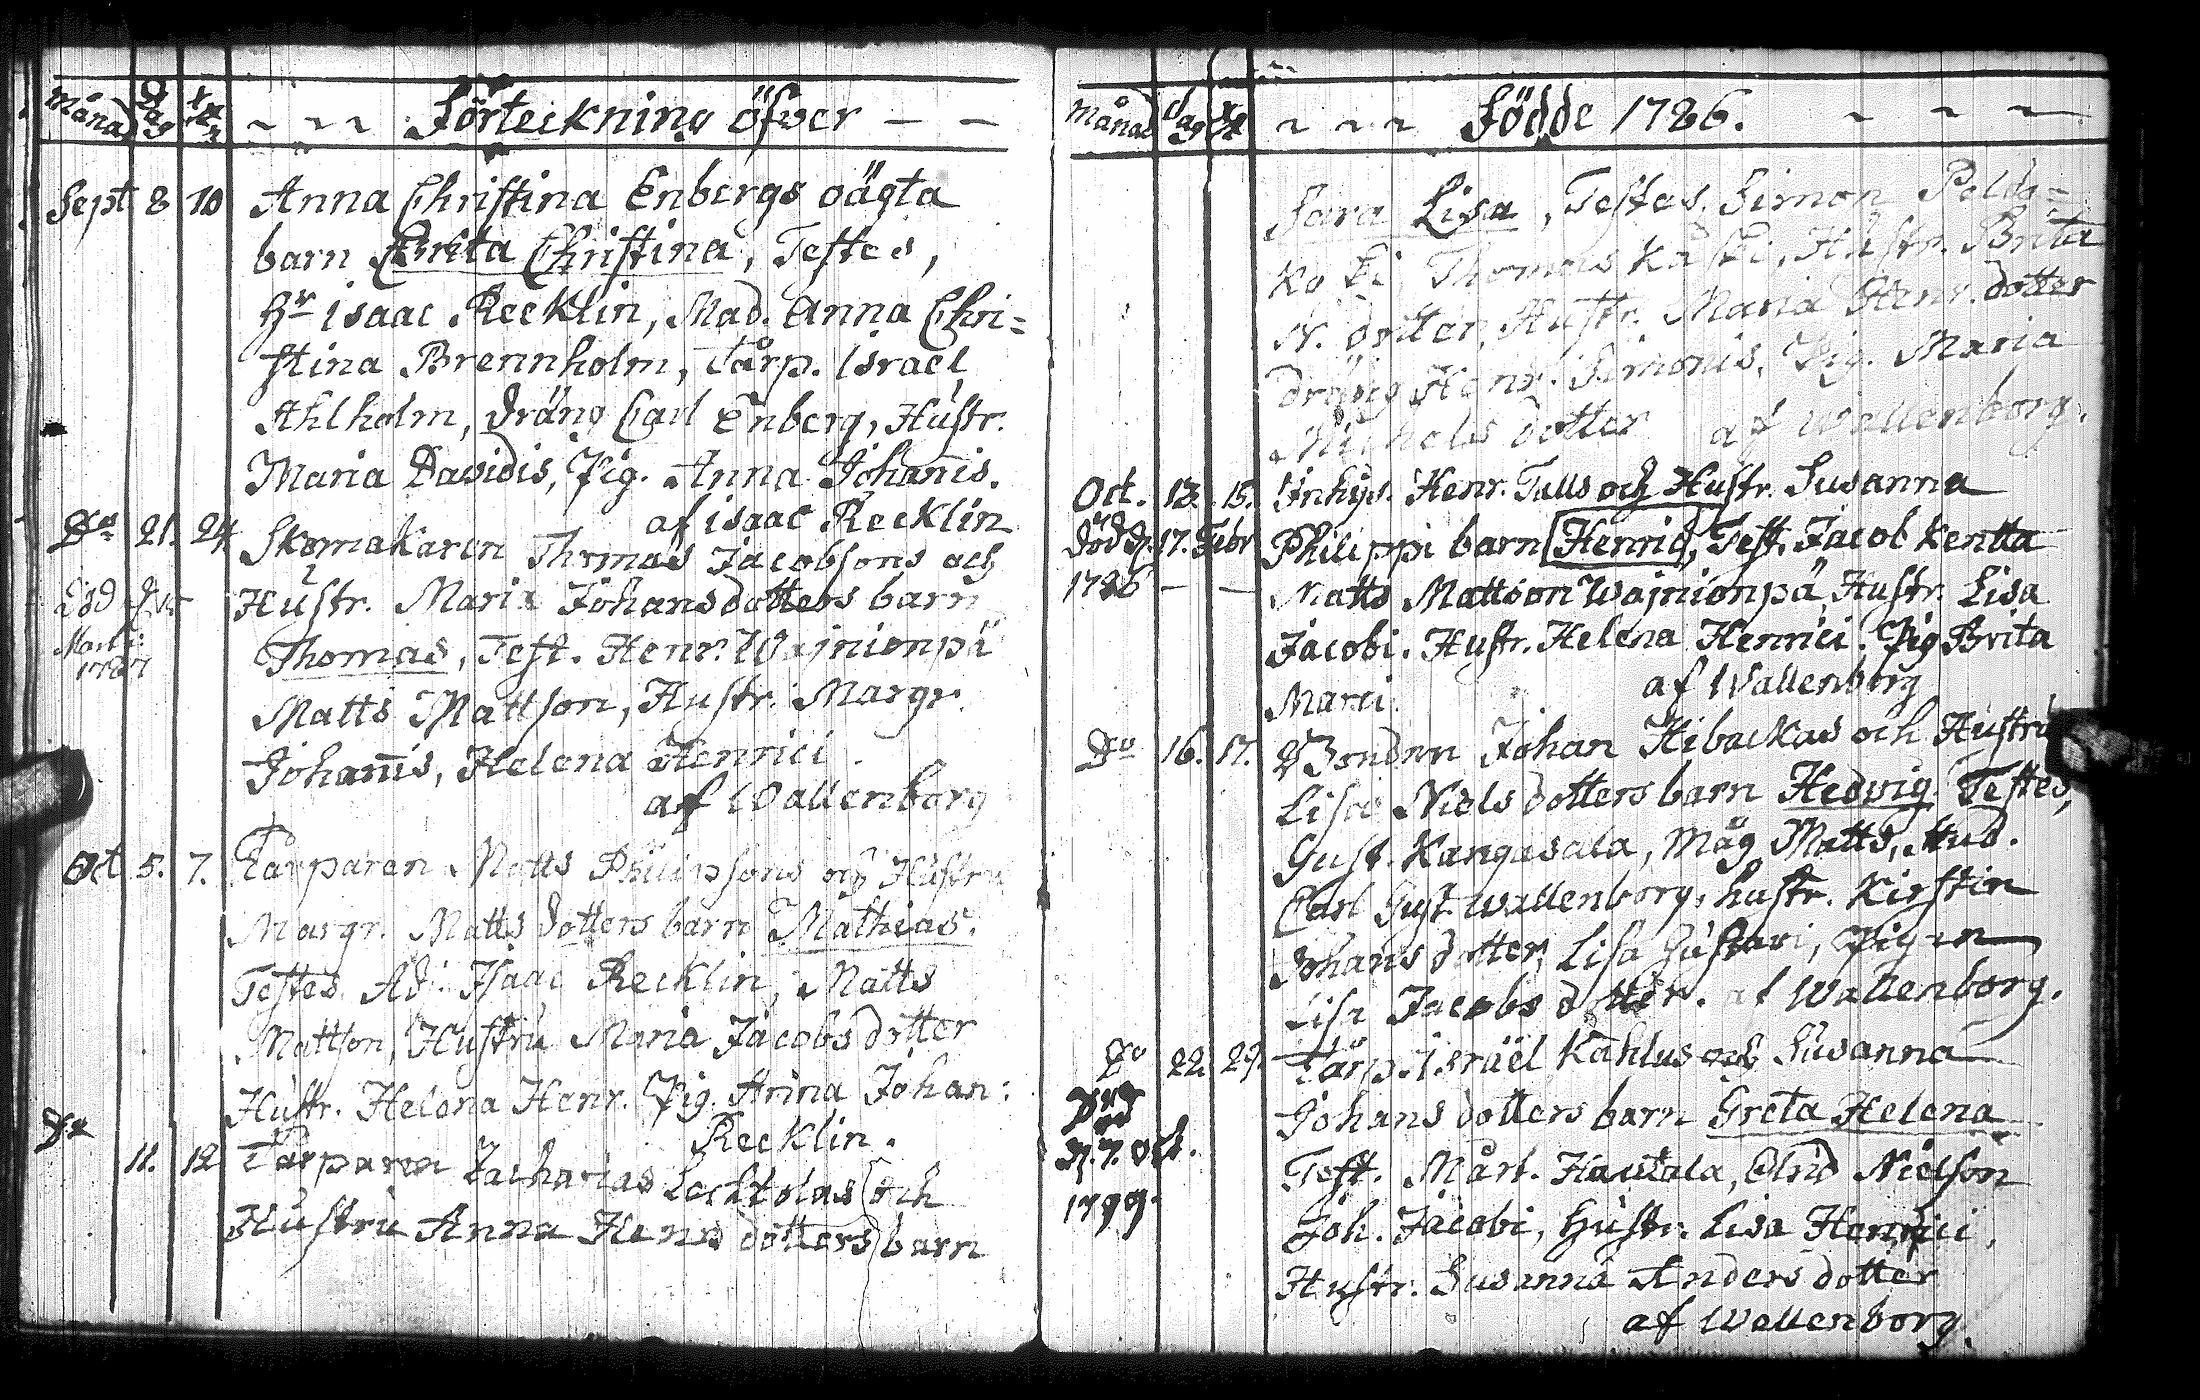 Månad Dag Förteckning öfver
Sept 8 10 Anna Christina Enbergs oägta
barn Brita Christina, Testes,
Hr Isaac Recklin, Mad. Anna Chri=
stina Brennholm, Tårp. Israel
Ahlholm, Dräng Carl Enberg, Hustr.
Maria Davidis, Pig. Anna Johannis.
af Isaac Recklin
Do 21. 24 Skomakaren Thomas Jacobsons och
Död d.
Hustr. Maria Johansdotters barn
Mart:
1787
Thomas, Test. Henr. Wajnionpä
Matts Mattson, Hustr. Margr.
Johannis, Helena Henrici
af Wallenborg
Oct 5. 7. Tårparen Matts Philipsons och Hustru
Margr. Matts dotters barn Mathias.
Testes Adj. Isaac Recklin, Matts
Mattson, Hustru Maria Jacobs dotter
Hustr. Helena Henr. Pig. Anna Johan:
Recklin.
Do 11. 12 Tårparen Zacharias Lechtolas och
Hustru Anna Henr dotters barn
Månad Dag Födde 1786.
Sara Lisa, Testes, Simon Poldo=
ko Ki, Thomas Kaski, Hustr. Brita
N. dotter, Hustr. Maria Henr. dotter
dräng Henr. Simonis, Pig. Maria
Michels dotter af Wallenborg.
Oct. 13. 15. Inhys. Henr. Talls och Hustr. Susanna
död d. 17. Febr Philippi barn Henric, Test. Jacob Kentta
1786 — — Matts Mattson Wajnionpä, Hustr. Lisa
Jacobi. Hustr. Helena Henrici. Pig Brita
Marci. af Wallenborg
Do 16. 17. Bonden Johan Hibackas och Hustru
Lisa Niels dotters barn Hedvig Testes,
Gust. Kangasala, Måg Matts, Stud.
Carl Gust. Wallenborg, hustr. Kirstin
Johans dotter, Lisa Gustavi, Pigan
Lisa Jacobs dotter. af Wallenborg.
Do 22. 29. Tårp. Israël Kahlus och Susanna
Johans dotters barn Greta Helena
Död
d. 7. Oct.
1799.
Test. Mårt. Hautala, Elric Nielson
Joh. Jacobi, Hustr. Lisa Henrici,
Hustr. Susanna Anders dotter
af Wallenborg.